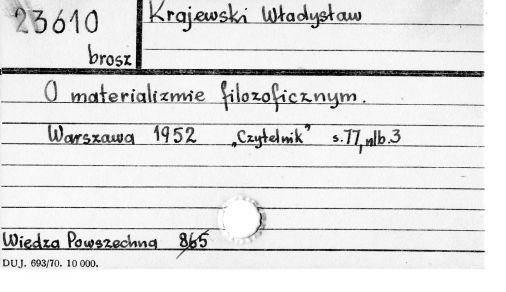 23610
Krajewski Władysław
brosz
O materializmie filozoficznym.
Warszawa 1952 „Czytelnik” s.77, nlb.3
Wiedza Powszechna 865
DUJ. 693/70. 10 000.